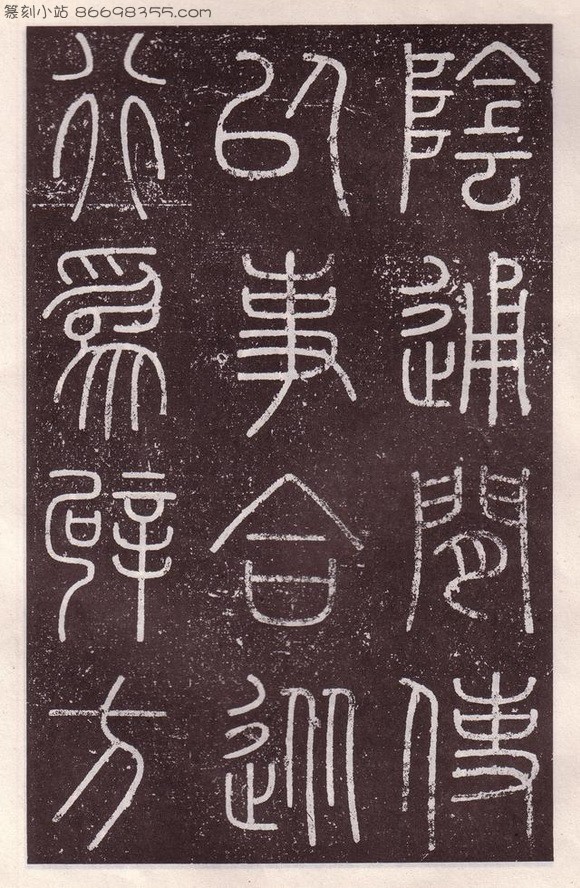 篆刻小站 86698355.com
陰通閒使
以事合從
行為辟方